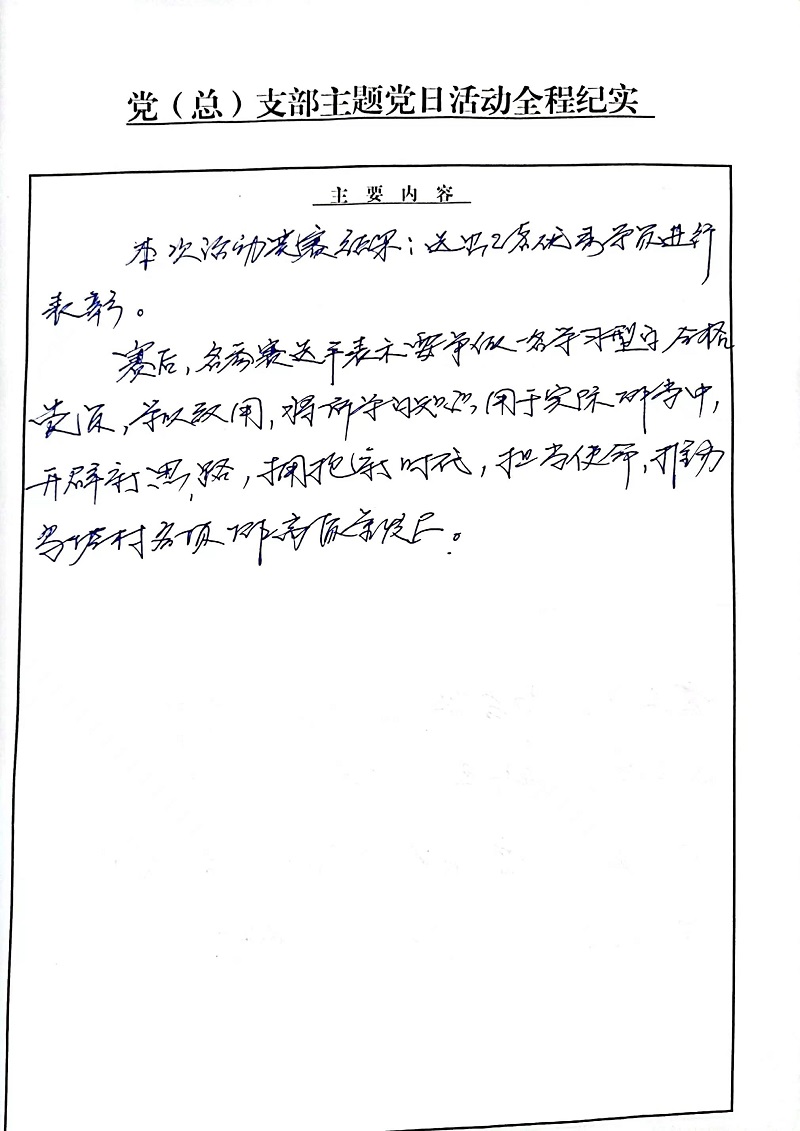 党（总）支部主题党日活动全程纪实
主要内容
本次活动竞赛结果：选出2名优秀学员进行
表彰。
赛后，各参赛选手表示要争做一名学习型合格
党员，学以致用，将所学的知识，用于实际中，
开辟新思路，拥抱新时代，担当使命，推动
村各项高质量发展。